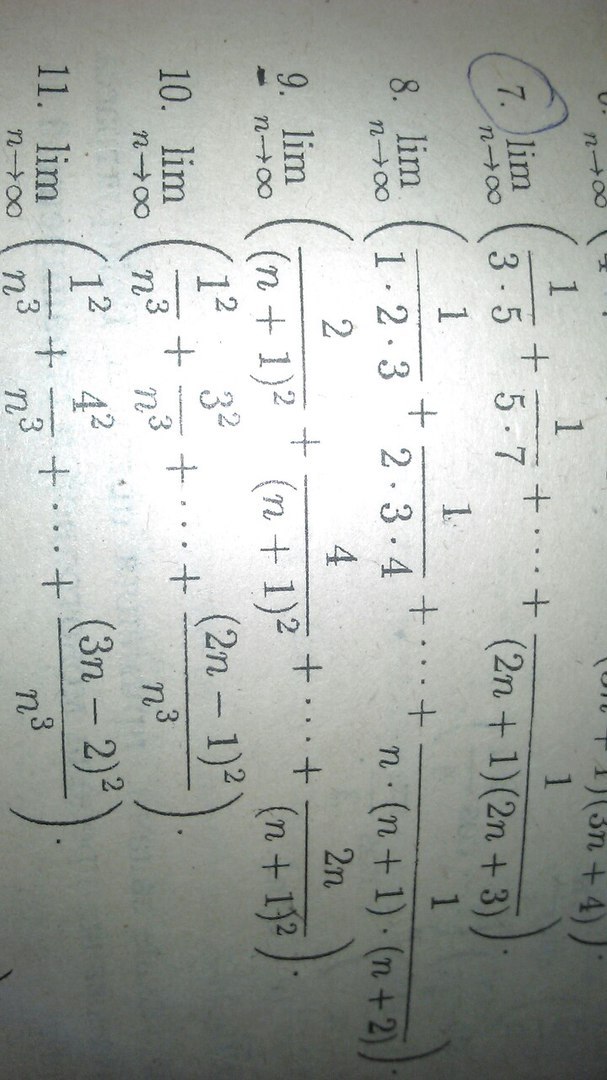 n→∞ (3n + 1)(3n + 4)).
7. lim n→∞ (1/(3·5) + 1/(5·7) + ... + 1/((2n + 1)(2n + 3))).
8. lim n→∞ (1/(1·2·3) + 1/(2·3·4) + ... + 1/(n·(n + 1)·(n + 2))).
9. lim n→∞ (2/(n + 1)² + 4/(n + 1)² + ... + 2n/(n + 1)²).
10. lim n→∞ (1²/n³ + 3²/n³ + ... + (2n − 1)²/n³).
11. lim n→∞ (1²/n³ + 4²/n³ + ... + (3n − 2)²/n³).